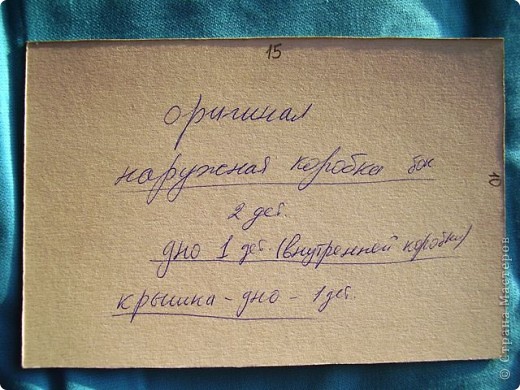 15
оригинал
наружная коробка бок
10
2 дет.
дно 1 дет (внутренней коробки)
крышка - дно - 1 дет.
© Страна Мастеров